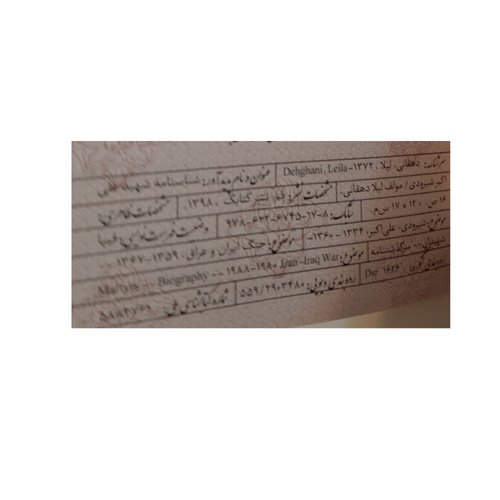 سرشناسه: دهقانی، لیلا، ۱۳۷۲- Dehghani, Leila عنوان و نام پدیدآور: شناسنامه شهید علی
اکبر شیرودی / مولف لیلا دهقانی. مشخصات نشر: قم، ۱۳۹۸. مشخصات ظاهری:
۱۶ ص. ۱۲ × ۱۷ س م. شابک: ۸-۱۷-۶۷۴۵-۶۲۲-۹۷۸ وضعیت فهرست نویسی: فیپا
موضوع: شیرودی، علی اکبر، ۱۳۳۴ - ۱۳۶۰- موضوع: جنگ ایران و عراق، ۱۳۵۹- ۱۳۶۷ --
شهیدان -- سرگذشتنامه موضوع: Iran-Iraq War, ۱۹۸۰-۱۹۸۸ -- Martyrs -- Biography
رده‌بندی کنگره: Dsr ۱۶۲۶ رده‌بندی دیویی: ۵۵۹/۲۹۰۳۴۸۰ شماره کتابشناسی ملی: